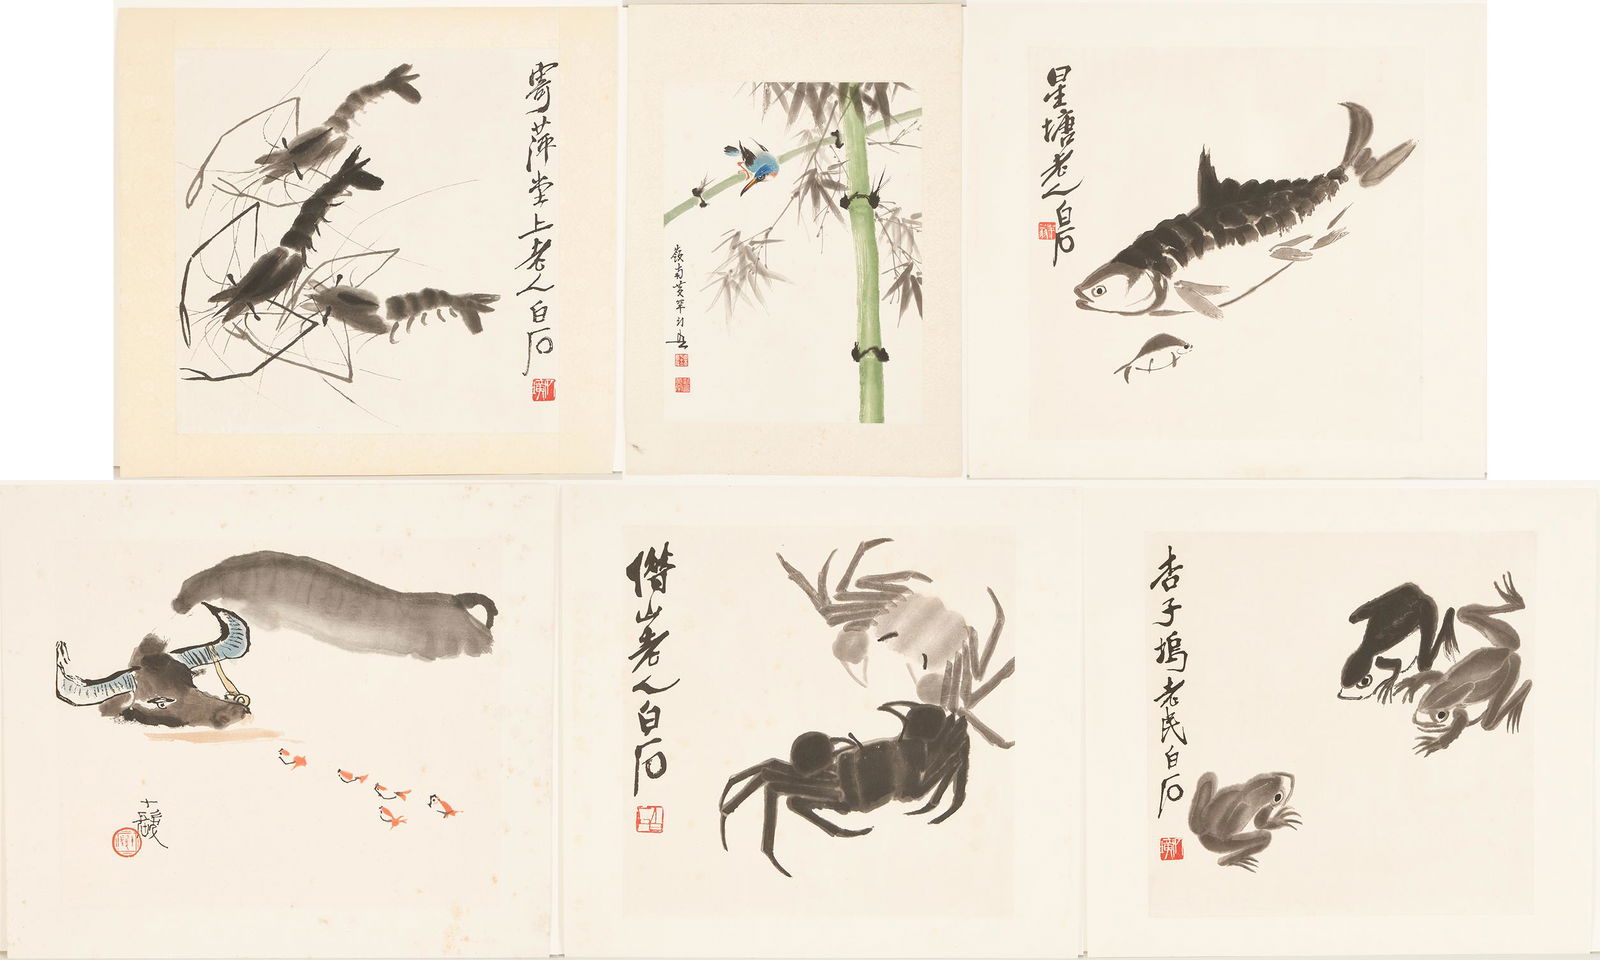 寄萍堂上老人白石
嶺南黃笔
星塘老人白石
借山老人白石
杏子塢老民白石